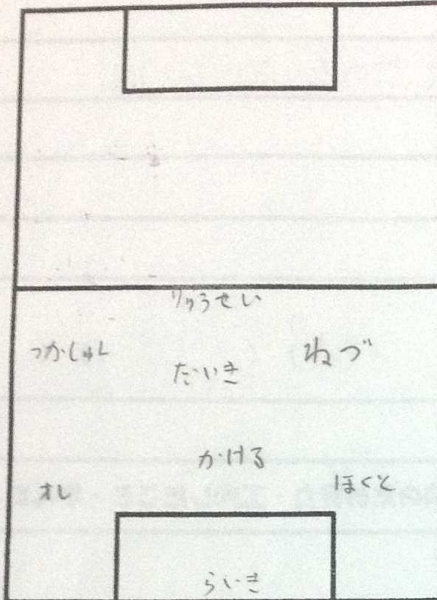 りゅうせい
つかしゅん
ねづ
だいき
かける
オレ
ほくと
らいき